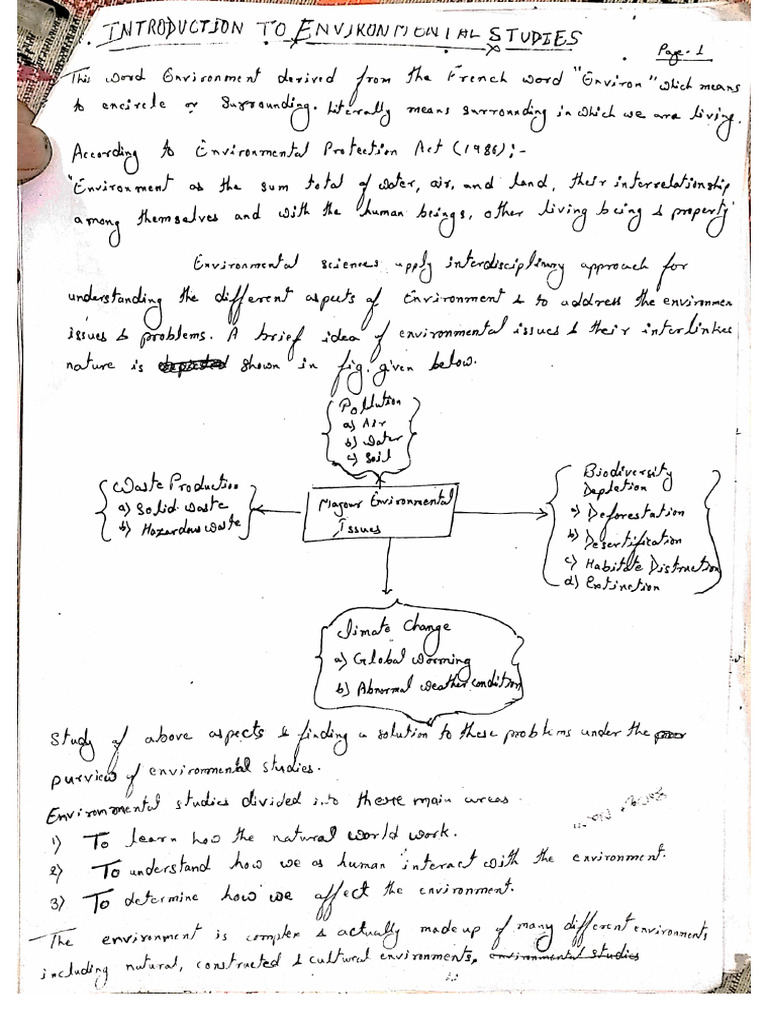 INTRODUCTION TO ENVIRONMENTAL STUDIES
Page-1
This word Environment derived from the French word "Environ" which means
to encircle or surrounding. Literally means surrounding in which we are living.
According to Environmental Protection Act (1986):-
"Environment as the sum total of water, air, and land, their interrelationship
among themselves and with the human beings, other living being & property"
Environmental sciences apply interdisciplinary approach for
understanding the different aspects of Environment & to address the environmen
issues & problems. A brief idea of environmental issues & their interlinked
nature is depicted shown in fig. given below.
Pollution
a) Air
b) Water
c) Soil
Waste Production
a) Solid waste
b) Hazardous waste
Majour Environmental
Issues
Biodiversity
Depletion
a) Deforestation
b) Desertification
c) Habitate Distruction
d) Extinction
Climate Change
a) Global Worming
b) Abnormal weather condition
Study of above aspects & finding a solution to these problems under the
purview of environmental studies.
Environmental studies divided into these main areas.
1) To learn how the natural world work.
2) To understand how we as human interact with the environment.
3) To determine how we affect the environment.
The environment is complex & actually made up of many different environments
including natural, constructed & cultural environments, environmental studies